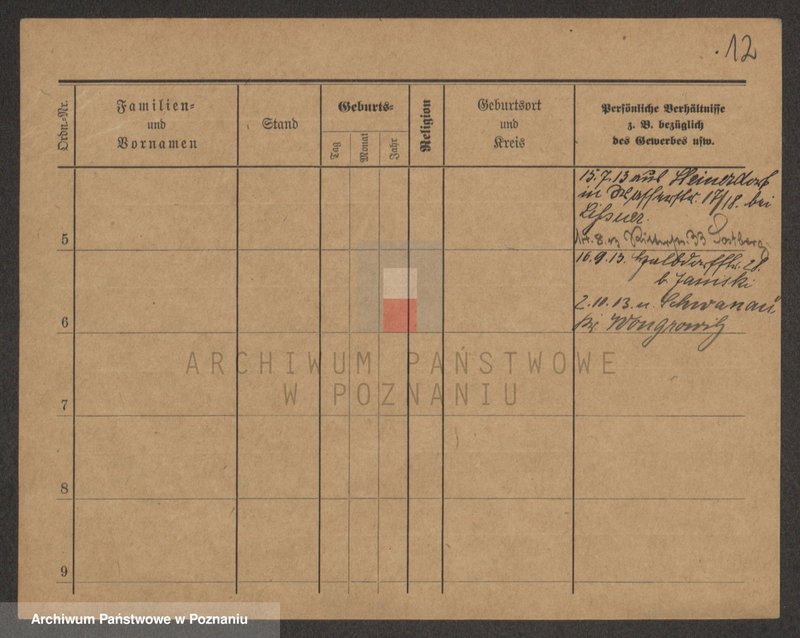 12
Ordn.-Nr.
Familien-
und
Vornamen
Stand
Geburts-
Tag
Monat
Jahr
Religion
Geburtsort
und
Kreis
Persönliche Verhältnisse
z. B. bezüglich
des Gewerbes usw.
15.7.13 aus Heinersdorf
in Wasserstr. 17/18. bei
5
33
16.9.13. Halbdorffstr. 28.
b. Janiski
2.10.13. n. Schwanau
6
Kr. Wongrowitz
ARCHIWUM PAŃSTWOWE
W POZNANIU
7
8
9
Archiwum Państwowe w Poznaniu